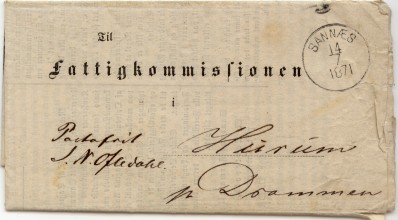 Til
Fattigkommissionen
i
SANNÆS
14/7
1871
Portofrit
Hurum
pr Drammen